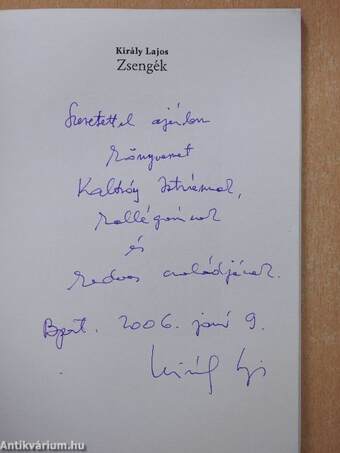 Király Lajos
Zsengék
Szeretettel ajánlom
könyvemet
Istvánnak,
kollégámnak
és
kedves családjának.
Bpest. 2006. júni 9.
Király Lajos
Antikvárium.hu